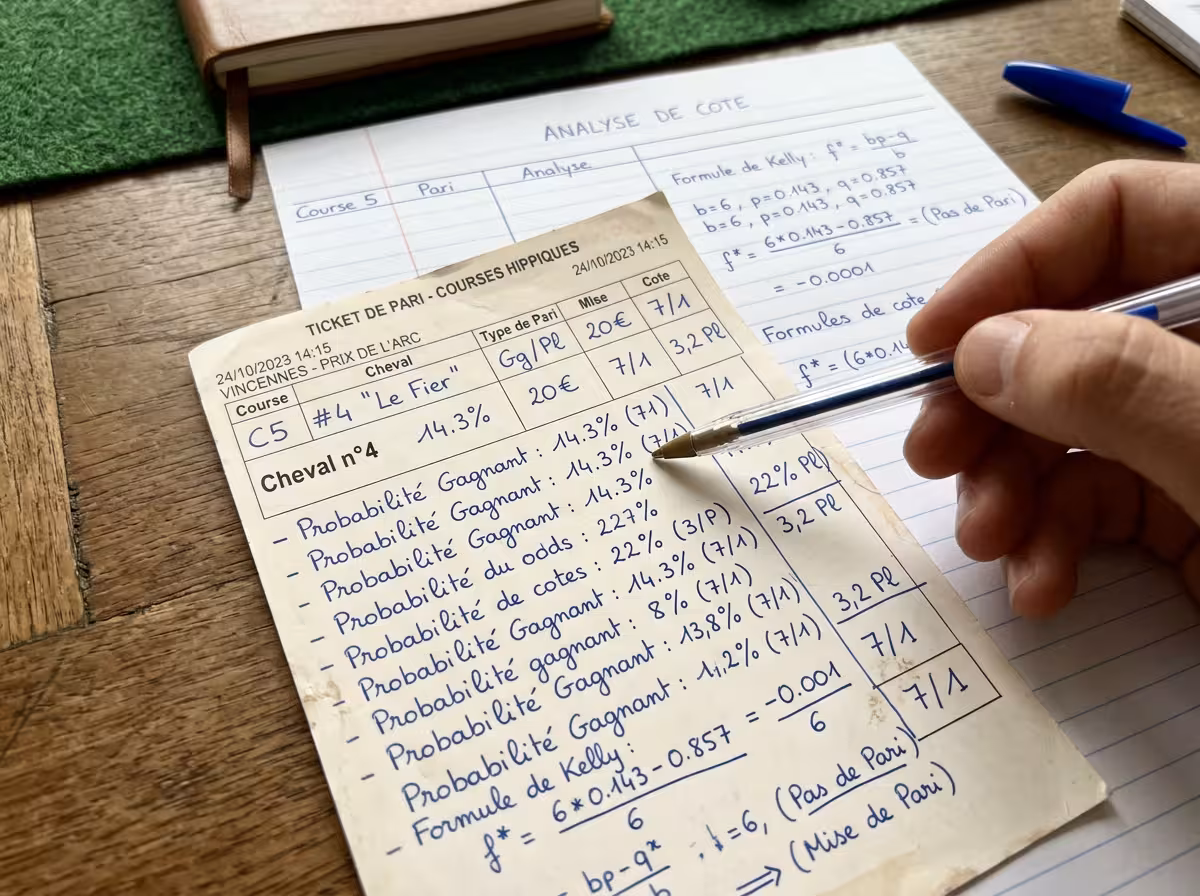 ANALYSE DE COTE
Course 5 Pari Analyse
Formule de Kelly : f* = bp-q / b
b=6, p=0.143, q=0.857
b=6, p=0.143, q=0.857
f* = 6*0.143-0.857 / 6 = (Pas de Pari)
= -0.0001
Formules de cote
f* = (6*0.14
TICKET DE PARI - COURSES HIPPIQUES
24/10/2023 14:15 24/10/2023 14:15
VINCENNES - PRIX DE L'ARC
Course Cheval Type de Pari Mise Cote
C5 #4 "Le Fier" Gg/Pl 20€ 7/1
14.3% 20€ 7/1 3,2 Pl
Cheval n°4
- Probabilité Gagnant : 14.3% (71) 7/1
- Probabilité Gagnant : 14.3% (7/1)
- Probabilité Gagnant : 14.3% 22% Pl)
- Probabilité du odds : 227% 3,2 Pl
- Probabilité de cotes : 22% (3/P)
- Probabilité Gagnant : 14.3% (7/1) 3,2 Pl
- Probabilité gagnant : 8% (7/1) 7/1
- Probabilité Gagnant : 13,8% (7/1) 7/1
Probabilité Gagnant : 1,.2% (7/1)
- Formule de Kelly :
f* = 6*0.143-0.857 / 6 = -0.001 / 6
- bp-q* / b , =6, (Pas de Pari)
⟹ (Mise de Pari)